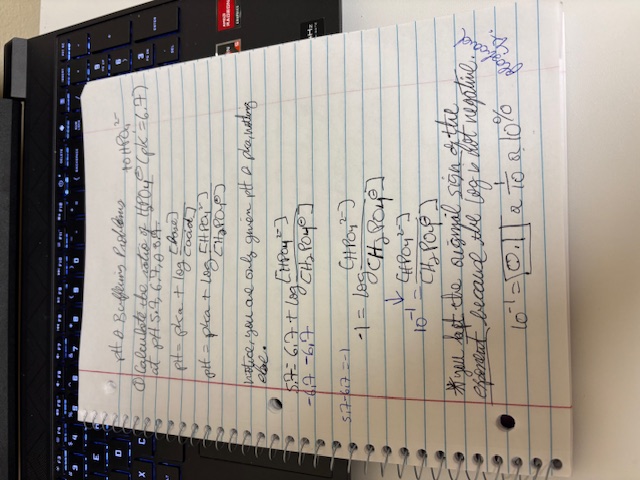 pH & Buffering Problems
① Calculate the ratio of H₂PO₄⊖ to HPO₄²⁻ (pK = 6.7)
at pH 5.7, 6.7, & 8.7.
pH = pKa + log [base]/[acid]
pH = pKa + log [HPO₄²⁻]/[H₂PO₄⊖]
notice you are only given pH & pKa, nothing
else.
5.7 = 6.7 + log [HPO₄²⁻]/[H₂PO₄⊖]
-6.7 -6.7
5.7-6.7=-1
-1 = log [HPO₄²⁻]/[H₂PO₄⊖]
10⁻¹ = [HPO₄²⁻]/[H₂PO₄⊖]
* you kept the original sign of the
exponent because the log is not negative.
10⁻¹ = 0.1 or 1/10 or 10%